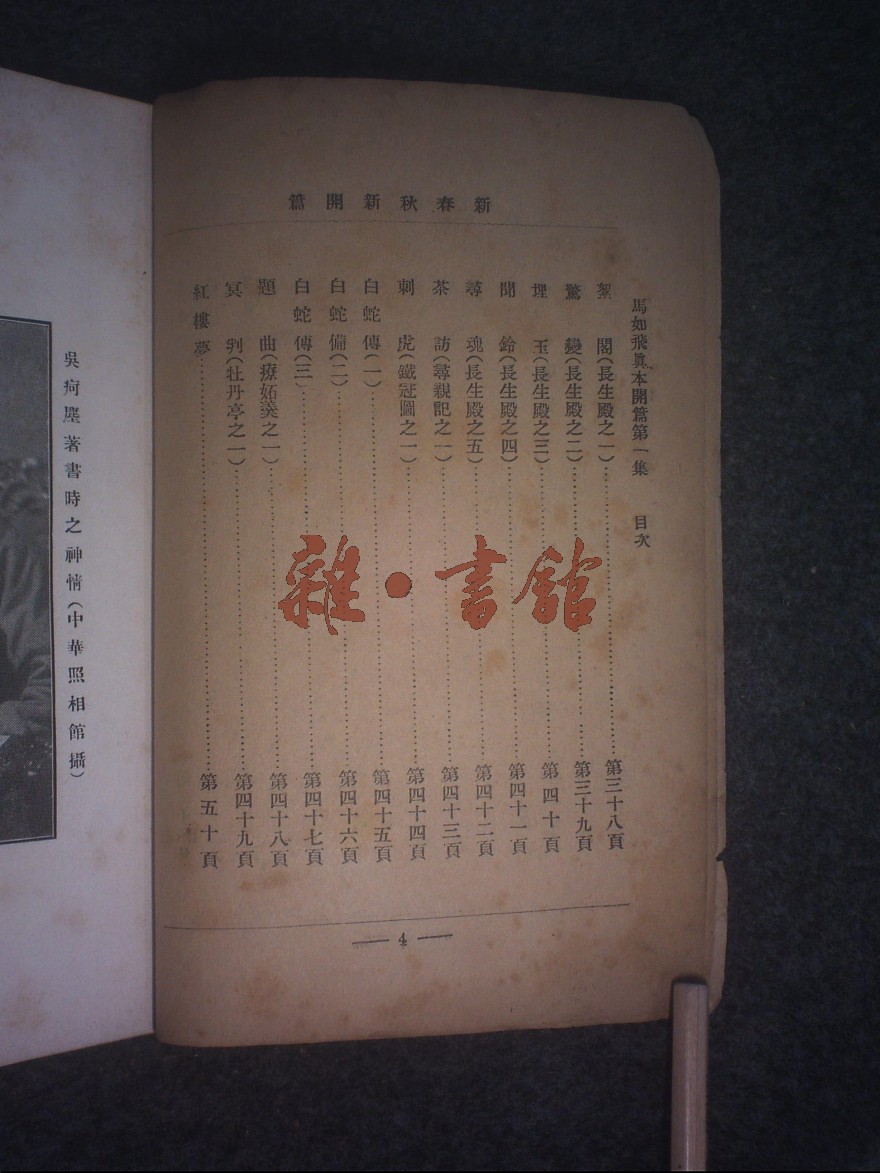 新春秋新開篇
馬如飛眞本開篇第一集 目次
絮閣(長生殿之一)……第三十八頁
驚變(長生殿之二)……第三十九頁
埋玉(長生殿之三)……第四十頁
聞鈴(長生殿之四)……第四十一頁
尋魂(長生殿之五)……第四十二頁
茶訪(尋親記之一)……第四十三頁
刺虎(鐵冠圖之一)……第四十四頁
白蛇傳(一)……第四十五頁
白蛇傋(二)……第四十六頁
白蛇傳(三)……第四十七頁
題曲(療妬羹之一)……第四十八頁
冥判(牡丹亭之一)……第四十九頁
紅樓夢……第五十頁
— 4 —
吳疴塵著書時之神情(中華照相館攝)
雜·書舘